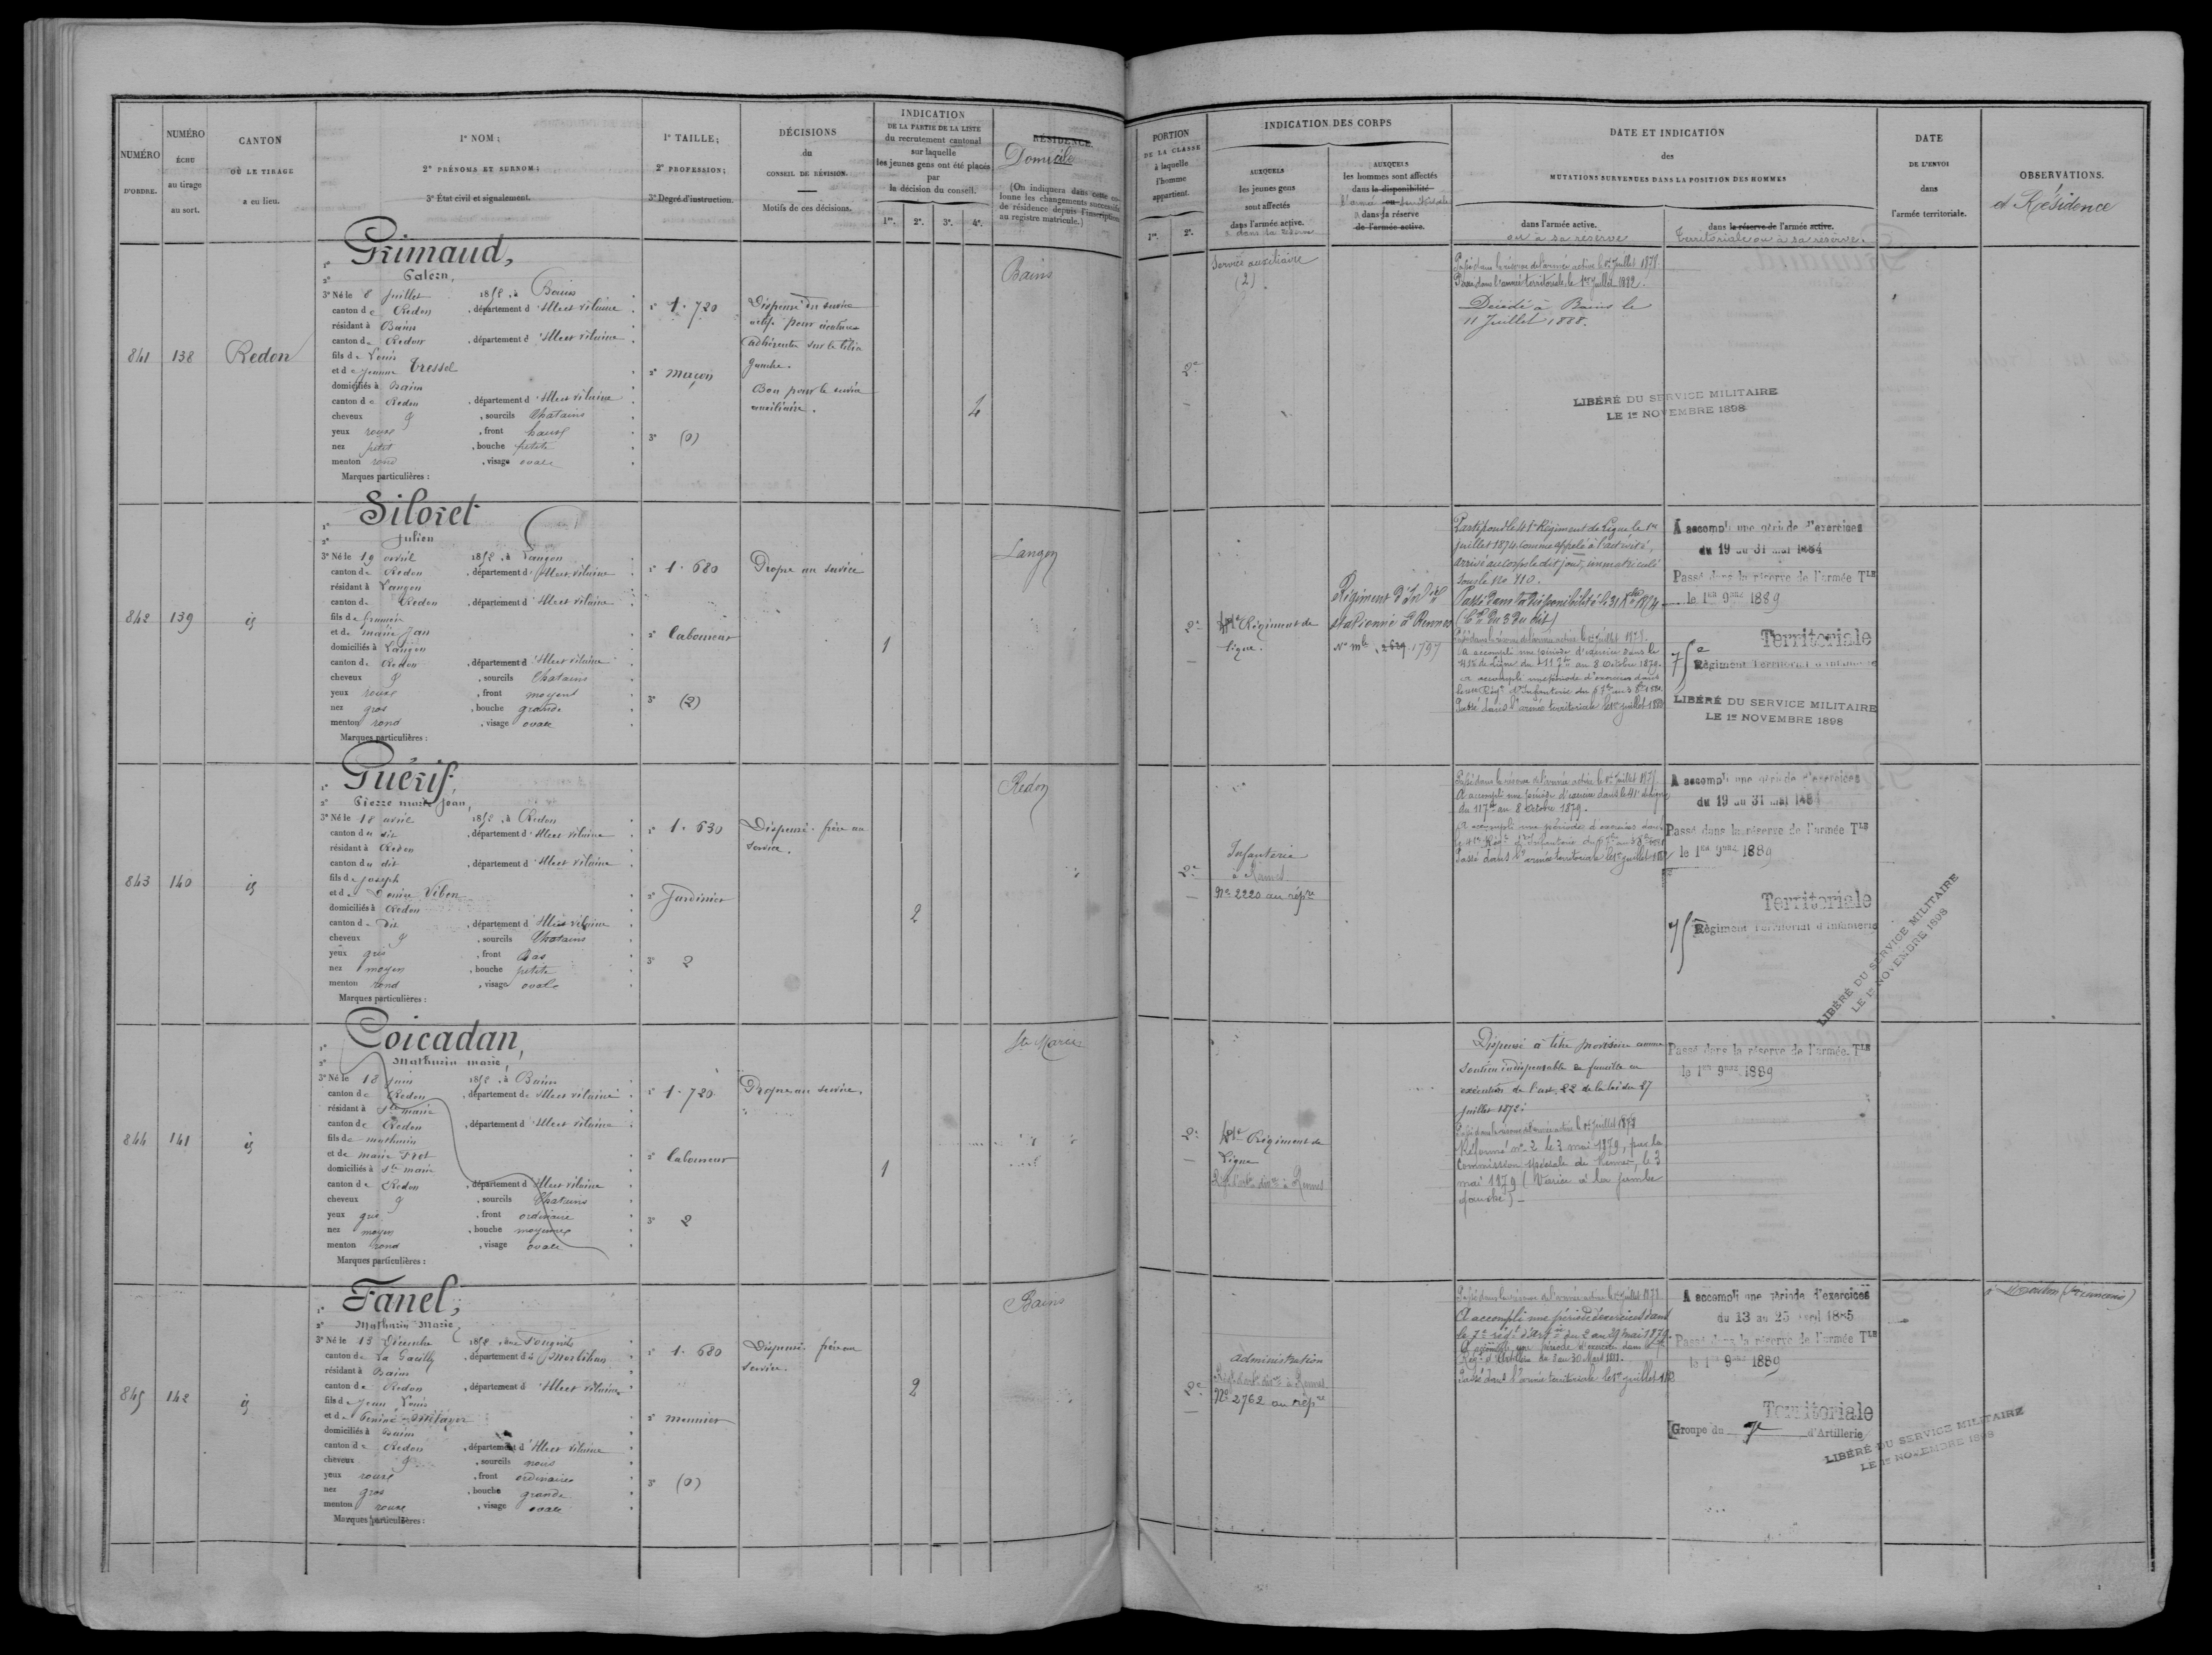 NUMÉRO
D'ORDRE.
NUMÉRO
ÉCHU
au tirage
au sort.
CANTON
OÙ LE TIRAGE
a eu lieu.
1º NOM;
2º PRÉNOMS ET SURNOM;
3º État civil et signalement.
1º TAILLE;
2º PROFESSION;
3º Degré d'instruction.
DÉCISIONS
du
CONSEIL DE RÉVISION.
Motifs de ces décisions.
INDICATION
DE LA PARTIE DE LA LISTE
du recrutement cantonal
sur laquelle
les jeunes gens ont été placés
par
la décision du conseil.
1re. 2e. 3e. 4e.
RÉSIDENCE.
Domicile
(On indiquera dans cette co-
lonne les changements successifs
de résidence depuis l'inscription
au registre matricule.)
841
138
Redon
1º Grimaud,
2º
3º Né le 8 Juillet 1852, à Bains
canton de Redon, département d'Illeet vilaine
résidant à Bains
canton de Redon, département d'Illeet vilaine
fils de Louis
et de Jeanne Tressel
domiciliés à Bains
canton de Redon, département d'Illeet vilaine
cheveux &, sourcils Chatains
yeux roux, front haut
nez petit, bouche petite
menton rond, visage ovale
Marques particulières :
1º 1.720
2º maçon
3º (0)
Dispensé du service
actif pour cicatrice
adhérente sur le tibia
gauche.
Bon pour le service
auxiliaire.
4
Bains
842
139
id
1º Siloret
2º Julien
3º Né le 19 avril 1852, à Langon
canton de Redon, département d'Illeet vilaine
résidant à Langon
canton de Redon, département d'Illeet vilaine
fils de
et de marie Jan
domiciliés à Langon
canton de Redon, département d'Illeet vilaine
cheveux &, sourcils Chatains
yeux roux, front moyent
nez gros, bouche grande
menton rond, visage ovale
Marques particulières :
1º 1.680
2º laboureur
3º (2)
Propre au service
1
Langon
843
140
id
1º Guérif,
2º Pierre marie Jean,
3º Né le 18 avril 1852, à Redon
canton du dit, département d'Illeet vilaine
résidant à Redon
canton du dit, département d'Illeet vilaine
fils de Joseph
et de Denise Vibon
domiciliés à Redon
canton du dit, département d'Illeet vilaine
cheveux &, sourcils Chatains
yeux gris, front Bas
nez moyen, bouche petite
menton rond, visage ovale
Marques particulières :
1º 1.630
2º Jardinier
3º 2
Dispensé. frère au
service.
2
Redon
844
141
id
1º Coicadan,
2º Mathurin marie,
3º Né le 18 juin 1852, à Bains
canton de Redon, département de Illeet vilaine
résidant à Ste marie
canton de Redon, département d'Illeet vilaine
fils de mathurin
et de marie Frot
domiciliés à Ste marie
canton de Redon, département d'Illeet vilaine
cheveux &, sourcils Chatains
yeux gris, front ordinaire
nez moyen, bouche moyenne
menton rond, visage ovale
Marques particulières :
1º 1.720
2º laboureur
3º 2
Propre au service.
1
Ste Marie
845
142
id
1º Fanel,
2º Mathurin Marie,
3º Né le 13 Décembre 1852, à
canton de La Gacilly, département du Morbihan
résidant à Bains
canton de Redon, département d'Illeet vilaine
fils de Jean Louis
domiciliés à Bains
canton de Redon, département d'Illeet vilaine
cheveux &, sourcils noirs
yeux roux, front ordinaire
nez gros, bouche grande
menton, visage ovale
Marques particulières :
1º 1.680
2º meunier
3º (0)
Dispensé. frère au
service.
2
Bains
PORTION
DE LA CLASSE
à laquelle
l'homme
appartient.
1re. 2e.
INDICATION DES CORPS
AUXQUELS
les jeunes gens
sont affectés
dans l'armée active.
& dans la réserve
AUXQUELS
les hommes sont affectés
dans la disponibilité
l'armée ou territoriale
& dans la réserve
de l'armée active.
DATE ET INDICATION
des
MUTATIONS SURVENUES DANS LA POSITION DES HOMMES
dans l'armée active.
ou à sa réserve
dans la réserve de l'armée active.
Territoriale ou à sa réserve.
DATE
DE L'ENVOI
dans
l'armée territoriale.
OBSERVATIONS.
et Résidence
2e
Service auxiliaire
(2).
Passé dans la réserve de l'armée active le 1er Juillet 1878.
Passé dans l'armée territoriale le 1er Juillet 1882.
Décédé à Bains le
11 Juillet 1888.
LIBÉRÉ DU SERVICE MILITAIRE
LE 1er NOVEMBRE 1898
2e
41e Régiment de
ligne.
Régiment d'Infie
stationné à Rennes
No mle 2629 1797
Parti pour le 41e Régiment de Ligne le 1er
juillet 1874, comme appelé à l'activité,
arrivé au corps le dit jour, immatriculé
sous le No 710.
Passé dans la disponibilité le 31 Xbre 1874
Passé dans la réserve de l'armée active le 1er Juillet 1878.
A accompli une période d'exercice dans le
41e de Ligne du 11 7bre au 8 Octobre 1879.
A accompli une période d'exercices dans
Passé dans l'armée territoriale le 1er juillet 1882
A accompli une période d'exercices
du 19 au 31 mai 1884
Passé dans la réserve de l'armée TLE
le 1er 9bre 1889
Territoriale
75e Régiment Territorial d'Infanterie
LIBÉRÉ DU SERVICE MILITAIRE
LE 1er NOVEMBRE 1898
2e
Infanterie
à Rennes
No 2220 au répre
Passé dans la réserve de l'armée active le 1er Juillet 1878
A accompli une période d'exercice dans le 41e de ligne
du 11 7bre au 8 Octobre 1879.
A accompli une période d'exercices dans
Passé dans l'armée territoriale le 1er juillet 1882
A accompli une période d'exercices
du 19 au 31 mai 1884
Passé dans la réserve de l'armée TLE
le 1er 9bre 1889
Territoriale
75e Régiment Territorial d'Infanterie
LIBÉRÉ DU SERVICE MILITAIRE
LE 1er NOVEMBRE 1898
2e
41e Régiment de
Ligne
Dispensé à titre provisoire comme
soutien indispensable de famille en
exécution de l'art. 22 de la loi du 27
juillet 1872.
Passé dans la réserve de l'armée active le 1er Juillet 1878
Réformé no 2 le 3 mai 1879, par la
Commission spéciale de Rennes, le 3
mai 1879 (Varice à la jambe
gauche).
Passé dans la réserve de l'armée TLE
le 1er 9bre 1889
2e
administration
No 2762 au répre
Passé dans la réserve de l'armée active le 1er Juillet 1878
A accompli une période d'exercices dans
le 7e régt d'Artie du 2 au 29 mai 1879.
A accompli une période d'exercices dans le 7e
Régt d'Artillerie du 3 au 30 Mars 1881.
Passé dans l'armée territoriale le 1er juillet 1882
A accompli une période d'exercices
du 13 au 25 avril 1885
Passé dans la réserve de l'armée TLE
le 1er 9bre 1889
Territoriale
Groupe du 7e d'Artillerie
LIBÉRÉ DU SERVICE MILITAIRE
LE 1er NOVEMBRE 1898